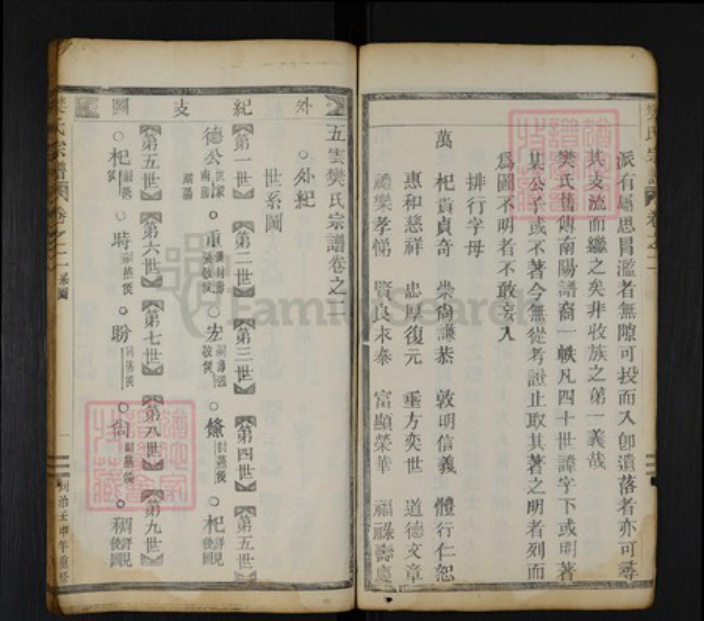 派有屬思冒濫者無隙可投而入卽遺落者亦可尋
其支流而繼之矣非收族之第一義哉
樊氏舊傳南陽譜裔一帙凡四十世諱字下或明著
某公子或不著今無從考證止取其著之明者列而
爲圖不明者不敢妄入
排行字母
萬 杞貴貞奇 崇尚謙恭 敦明信義 體行仁恕
惠和慈祥 忠厚復元 垂方奕世 道德文章
禮樂孝悌 賢良來泰 富顯榮華 福祿壽慶
五雲樊氏宗譜卷之二
外紀
世系圖
外紀支圖
第一世 第二世 第三世 第四世 第五世
德公 重 宏 鯈 杞 詳見後圖
第五世 第六世 第七世 第八世 第九世
杞 時 盼 尚 稠 詳見後圖
樊氏宗譜 卷之二 系圖
同治壬申年重修
FamilySearch